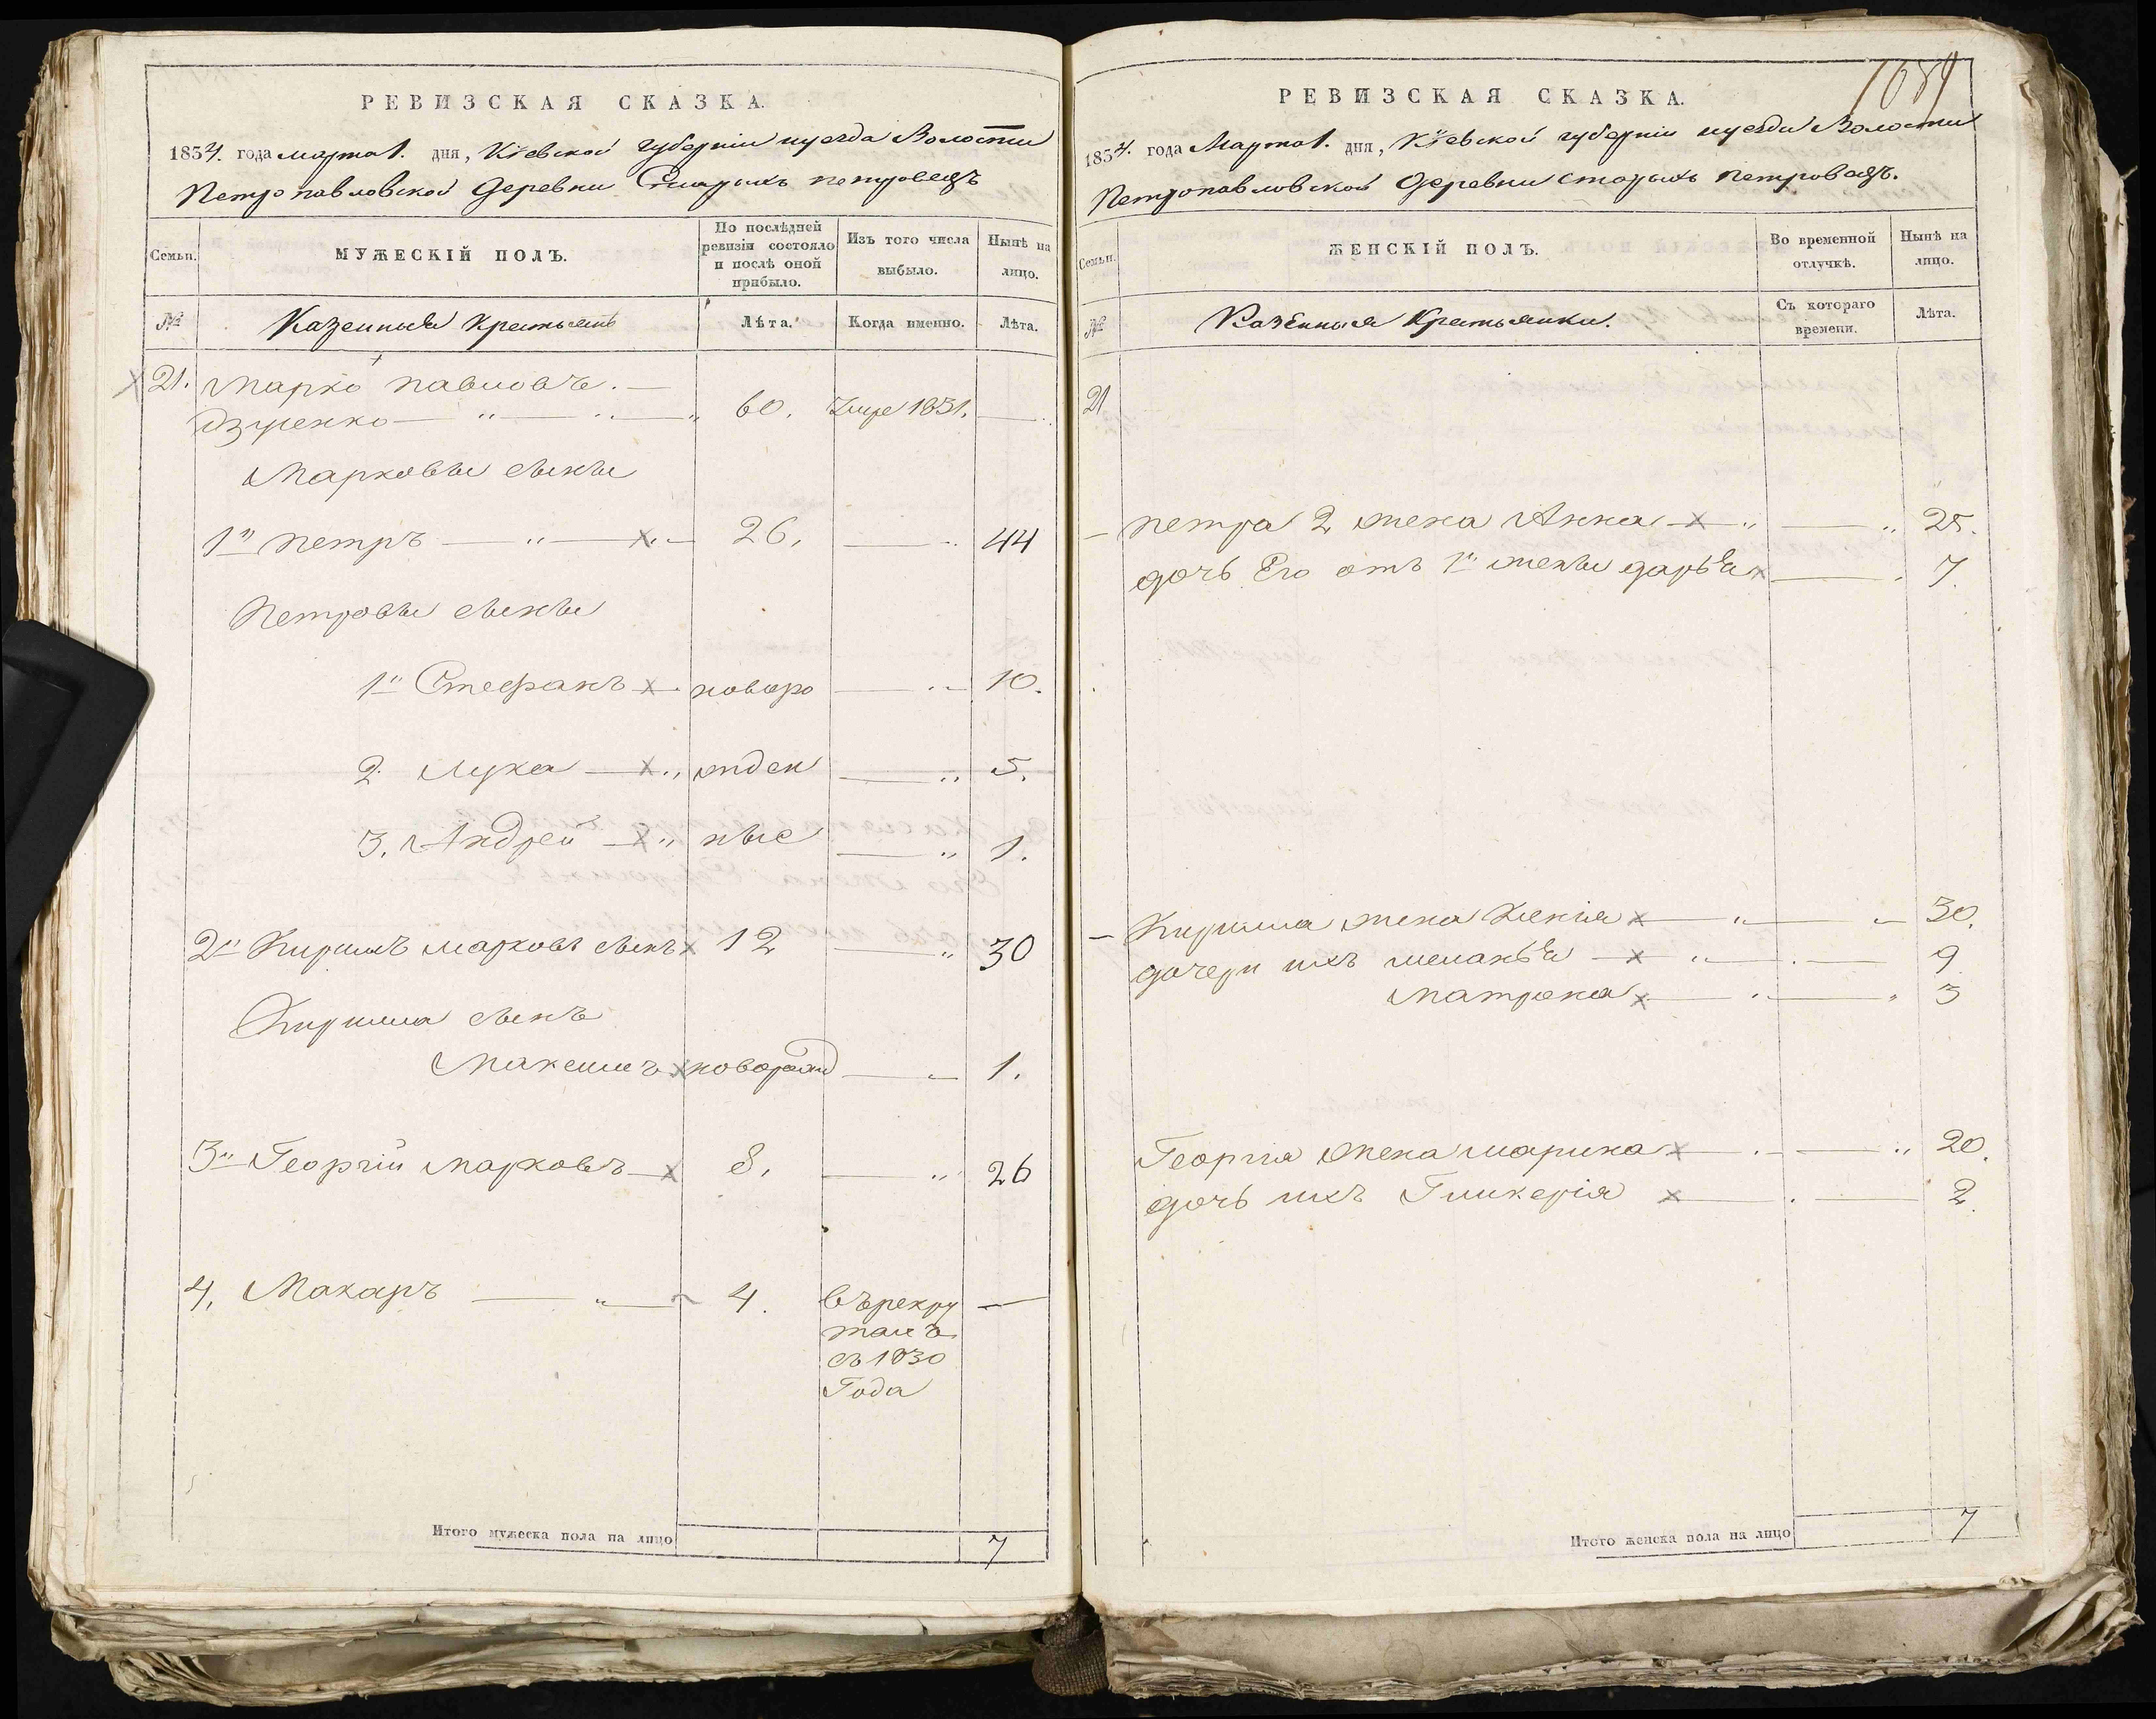 РЕВИЗСКАЯ СКАЗКА.
1834. года марта 1. дня, Кіевской губерніи и уезда Волости
Петропавловской Деревни Старыхъ петровецъ
Семьи.
МУЖЕСКІЙ ПОЛЪ.
По послѣдней ревизіи состояло и послѣ оной прибыло.
Изъ того числа выбыло.
Нынѣ на лицо.
№
Казенныя Крестьянѣ
Лѣта.
Когда именно.
Лѣта.
21. Марко павловъ.
Дзуенко 60. Умре 1831.
Марковы сыны
1й петръ 26. 44
Петровы сыны
1й Стефанъ новоро 10.
2. Лука жден 5.
3. Андрей ные 1.
2й Кирилъ марковъ сынъ 12 30
Кирила сынъ
Максимъ новорожд 1.
3й Георгій марковъ 8. 26
4. Макаръ 4. въ рекру
тахъ
съ 1830
Года
Итого мужеска пола на лицо 7
1084
РЕВИЗСКАЯ СКАЗКА.
1834. года Марта 1. дня, Кіевской губерніи и уезда Волости
Петропавловской Деревни старыхъ петровецъ.
Семьи.
ЖЕНСКІЙ ПОЛЪ.
Во временной отлучкѣ.
Нынѣ на лицо.
№
Казённыя Крестьянки.
Съ котораго времени.
Лѣта.
21
петра 2 жена Анна 25.
дочь Его отъ 1й жены дарья 7.
Кирила жена Ксенія 30.
дочери ихъ меланья 9
матрона 3
Георгія жена марина 20.
дочь ихъ Гликерія 2.
Итого женска пола на лицо 7